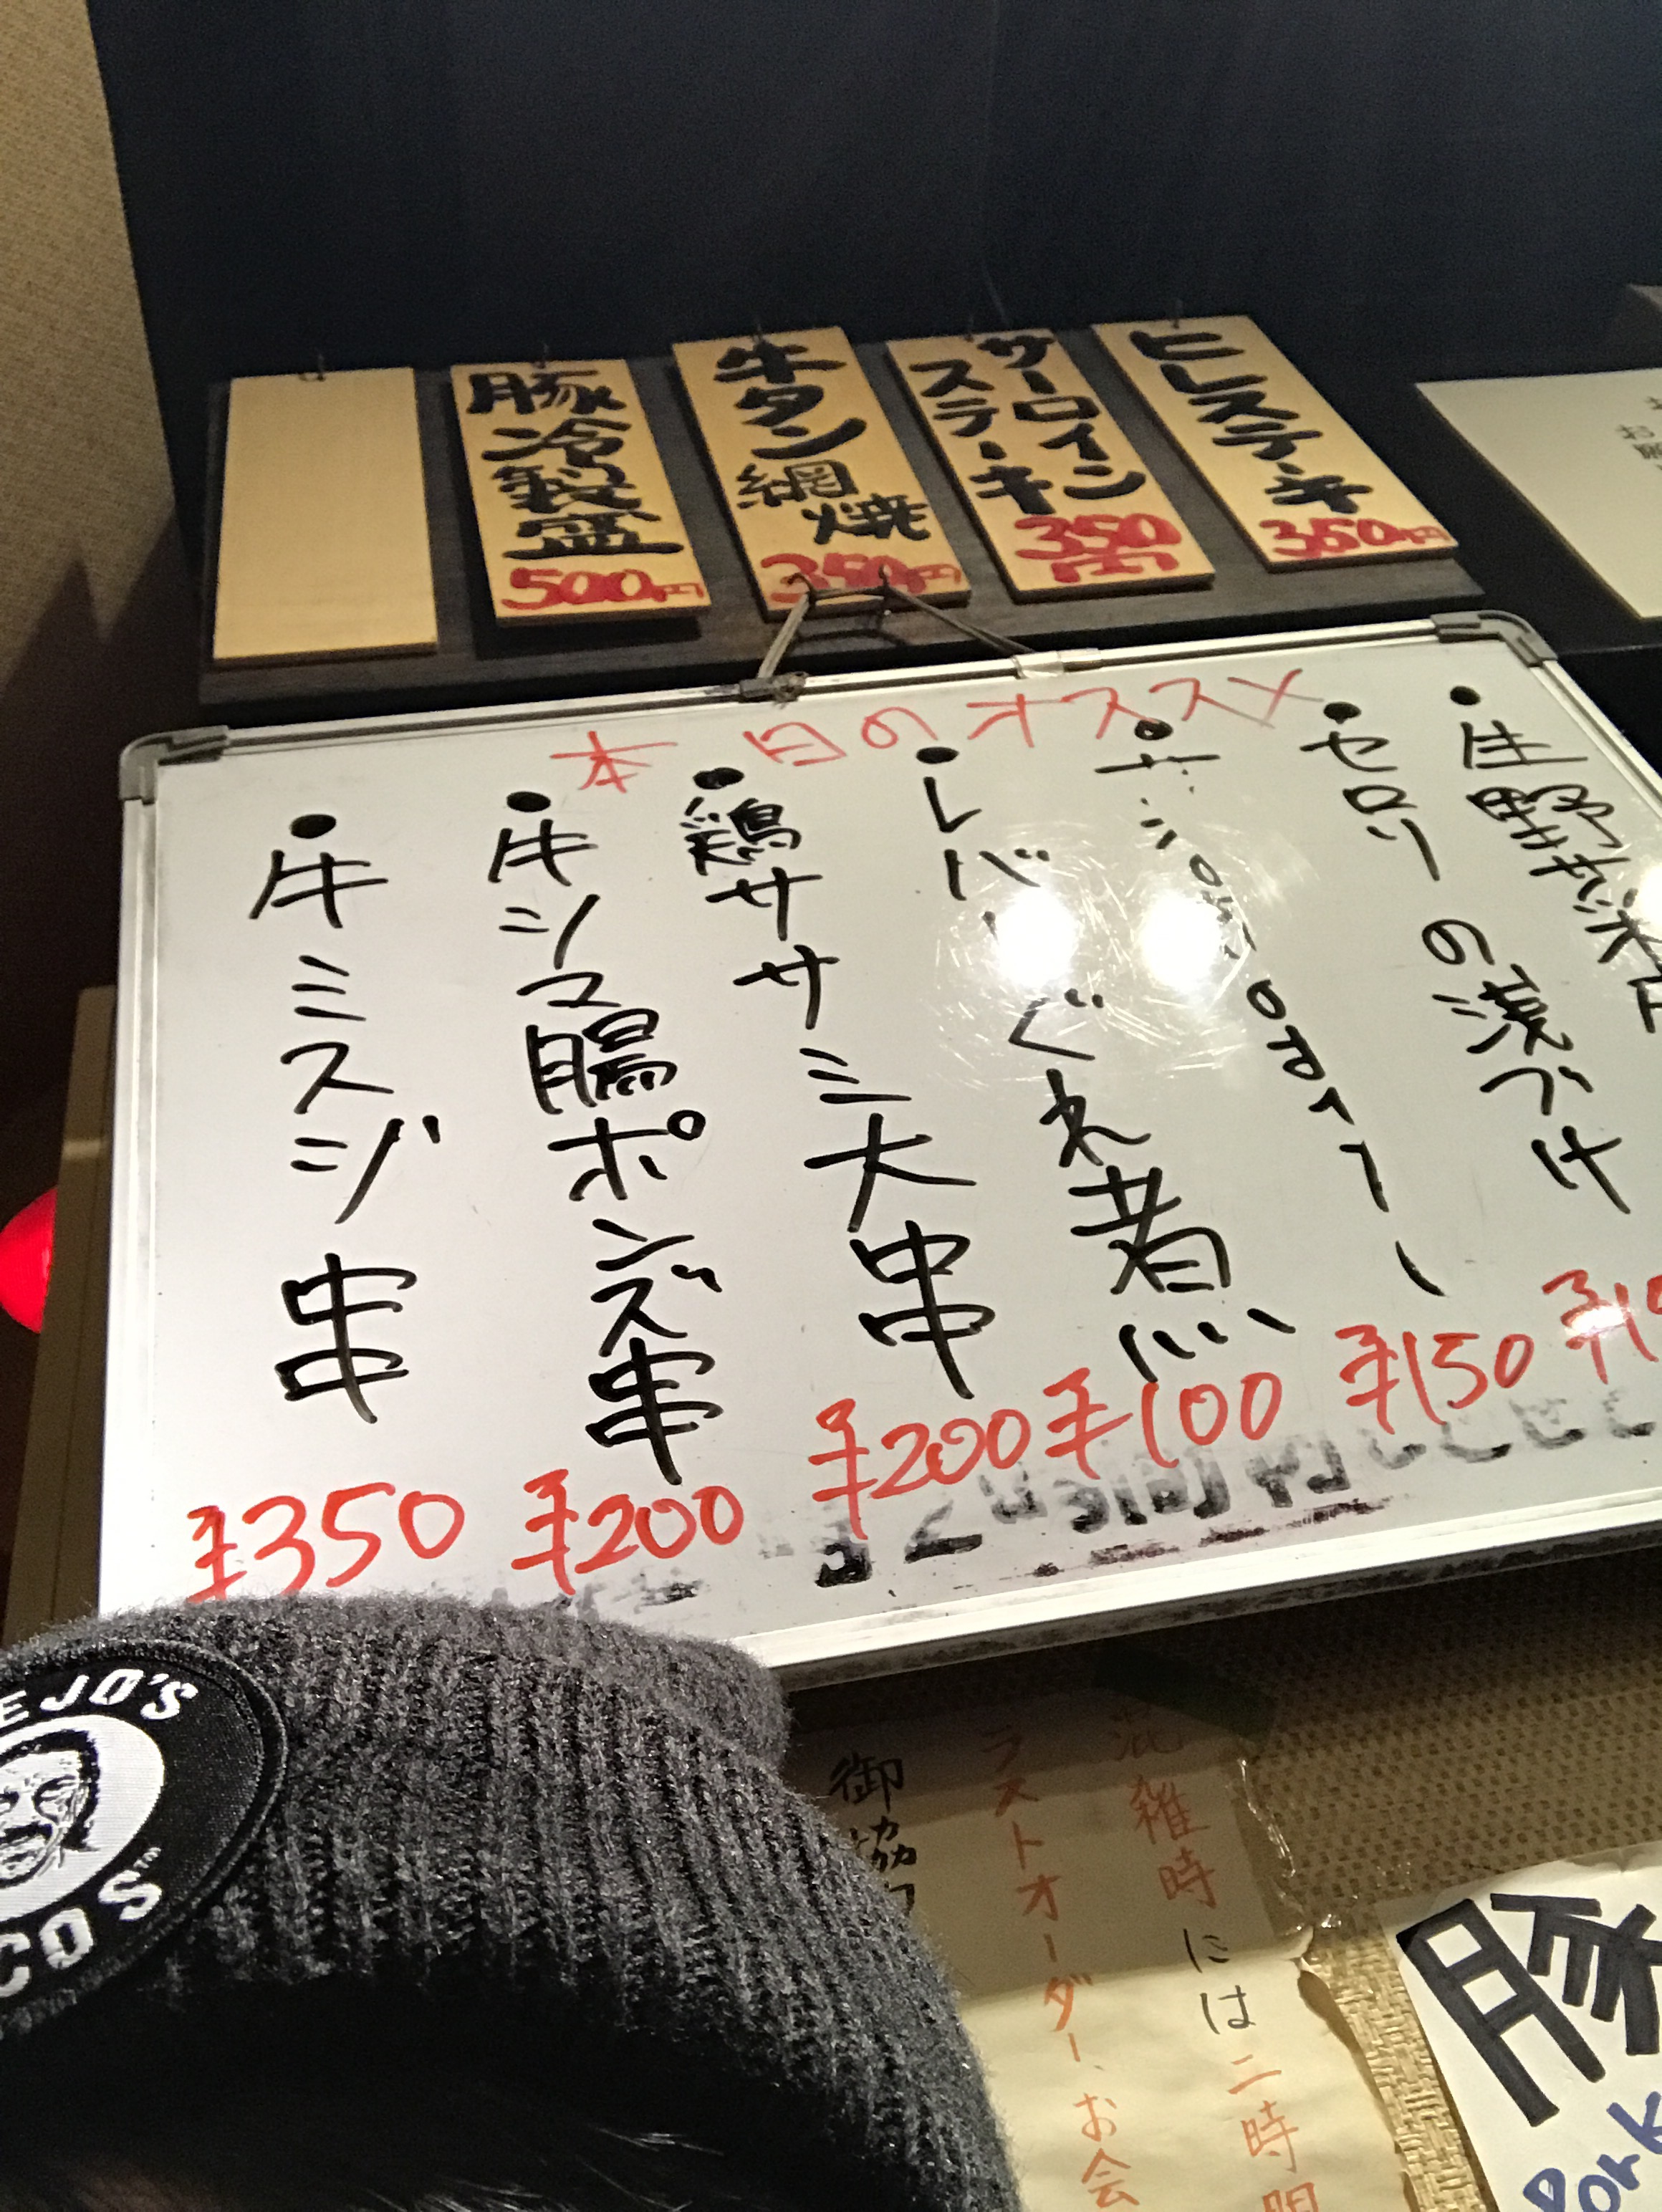 ヒレステーキ
350円
サーロイン
ステーキ
350
円
牛タン
網焼
350円
豚冷製盛
500円
本日のオススメ
●生野菜
●セロリーの浅づけ
¥150
●レバ
ぐれ煮
¥100
●鶏ササミ大串
¥200
●牛シマ腸ポンズ串
¥200
●牛ミスジ串
¥350
混雑時には二時間
ラストオーダー、お会
御協
豚
Pork
EJO'S
COS
お願